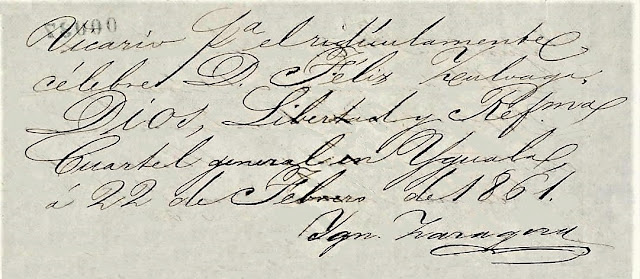 00082
Vicario pª. el ridículamente
célebre D. Felix Zuloaga.
Dios, Libertad y Refma
Cuartel general en Yguala
á 22 de Febrero de 1861.
Ygn. Zaragoza